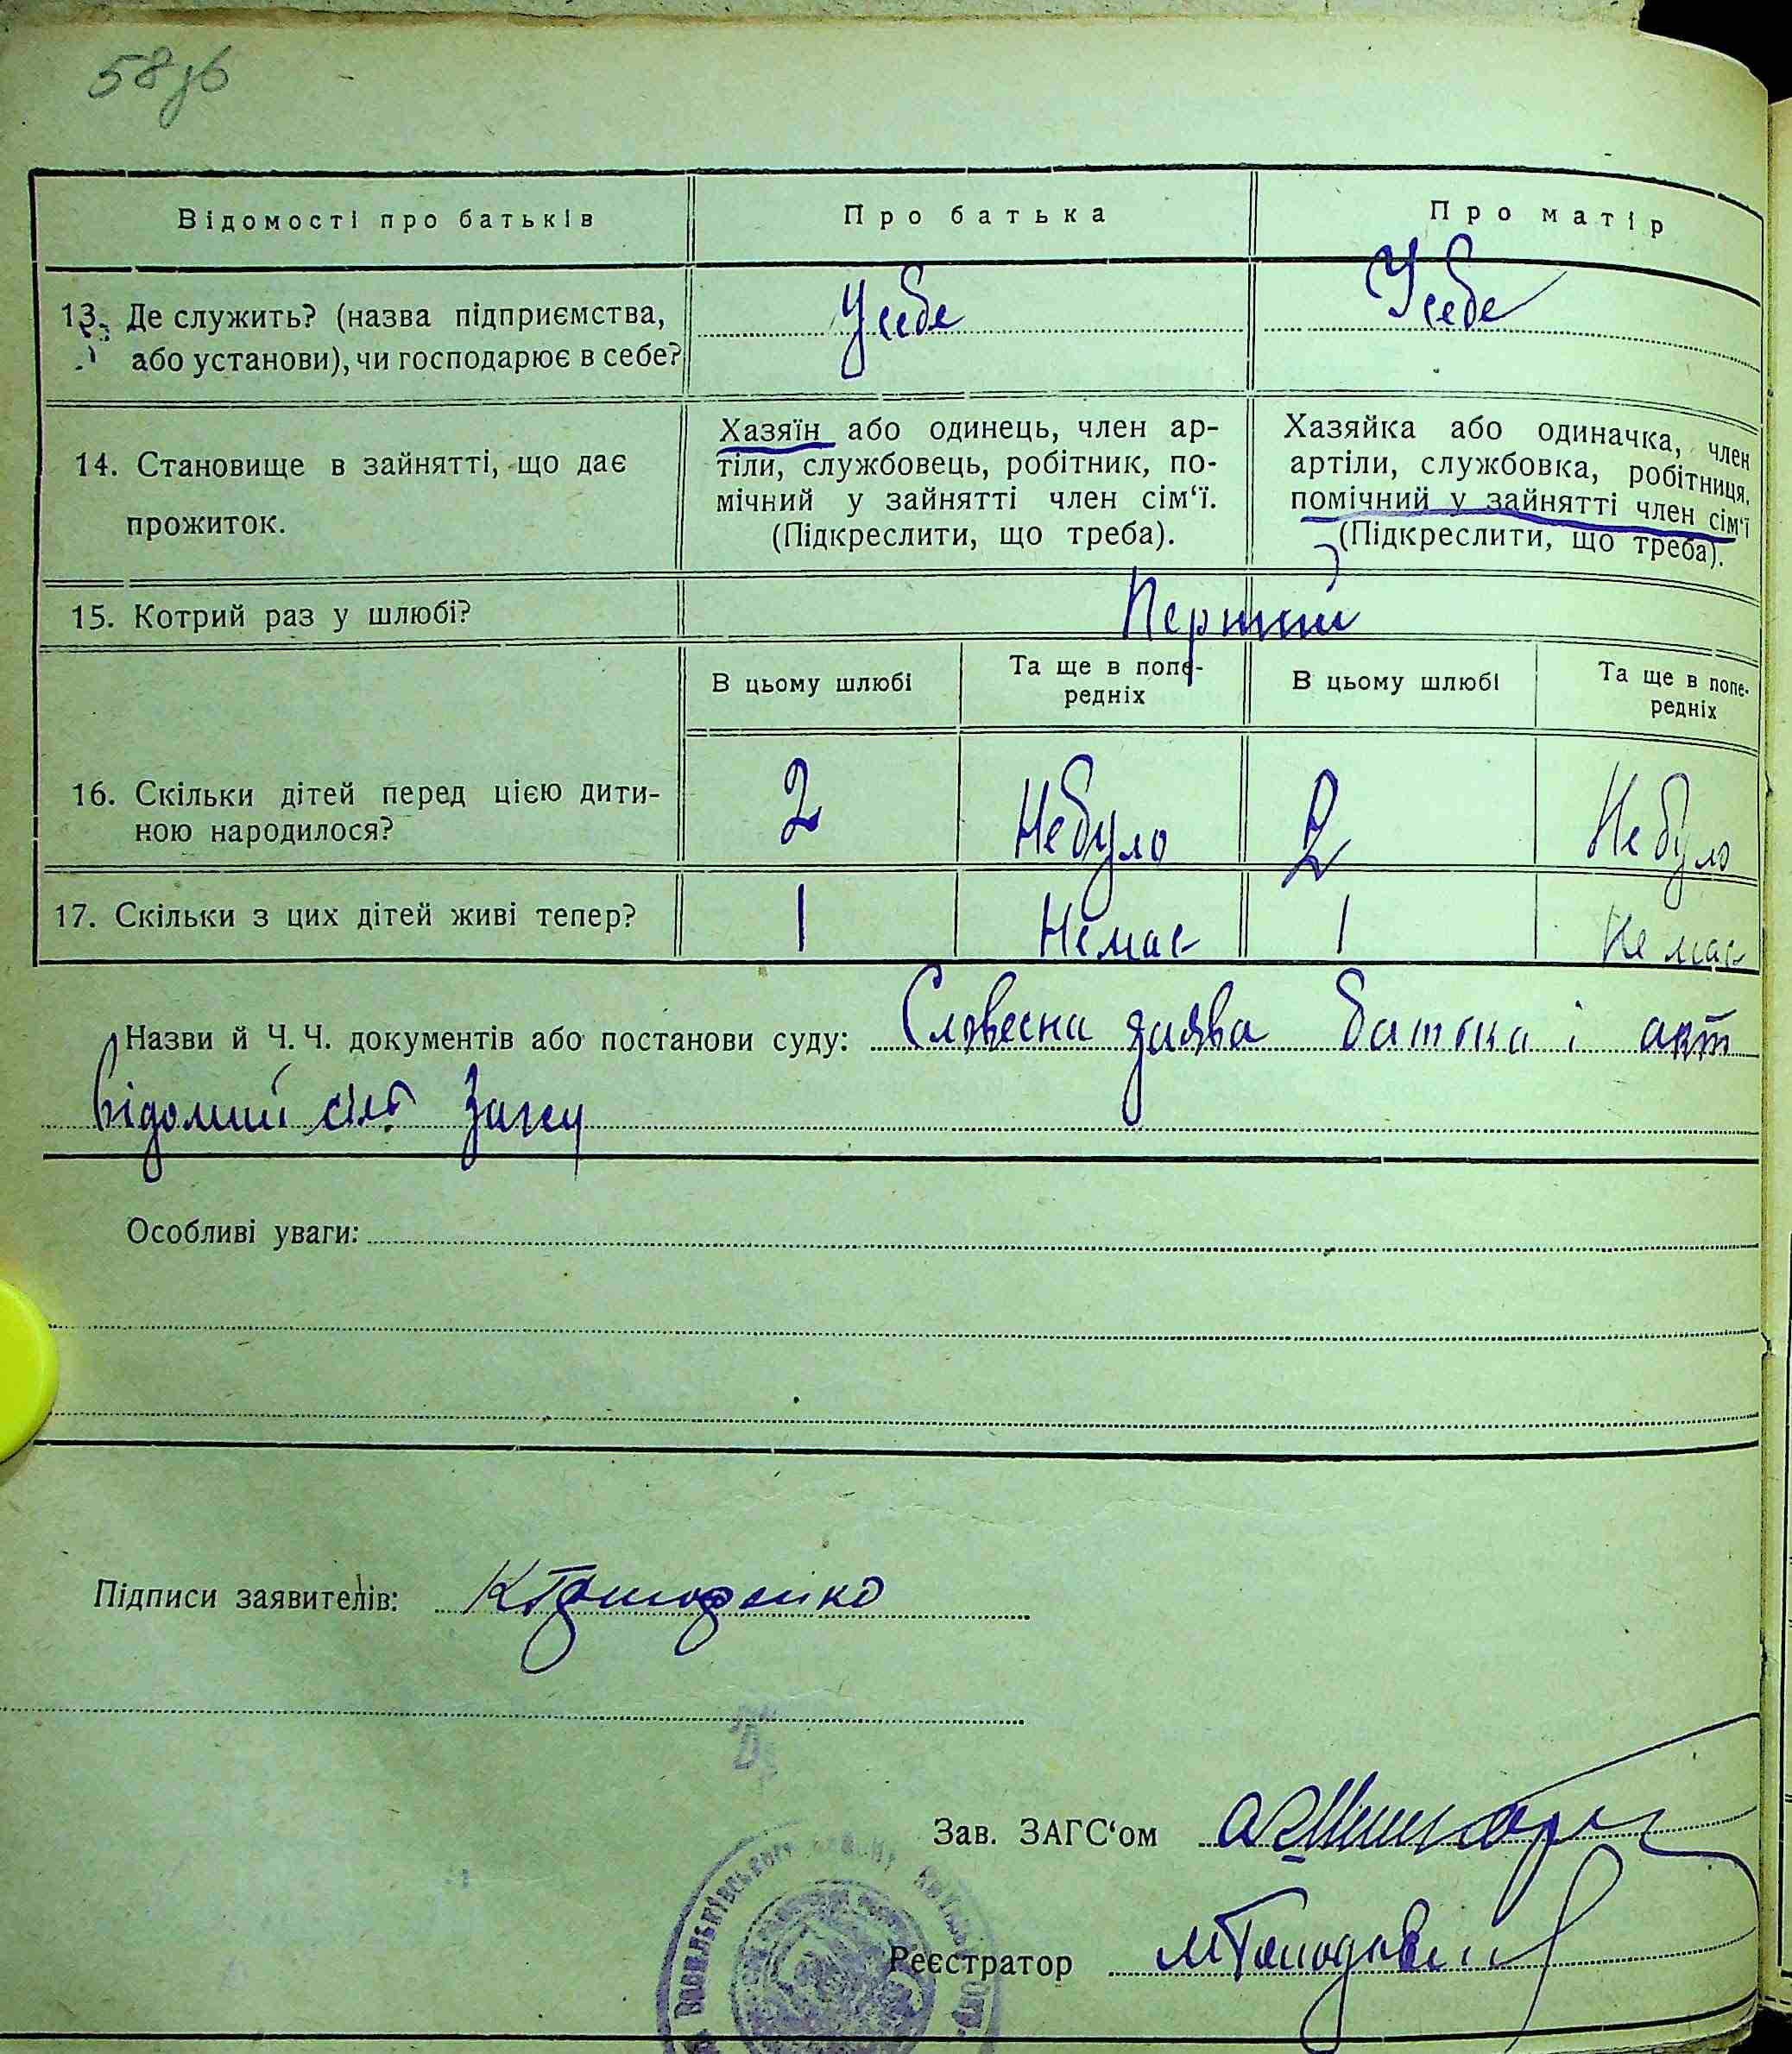 58зв
Відомості про батьків
Про батька
Про матір
13. Де служить? (назва підприємства,
або установи), чи господарює в себе?
У себе
У себе
14. Становище в зайнятті, що дає
прожиток.
Хазяїн або одинець, член ар-
тіли, службовець, робітник, по-
мічний у зайнятті член сім‘ї.
(Підкреслити, що треба).
Хазяйка або одиначка, член
артіли, службовка, робітниця,
помічний у зайнятті член сім‘ї
(Підкреслити, що треба).
15. Котрий раз у шлюбі?
Перший
В цьому шлюбі
Та ще в попе-
редніх
В цьому шлюбі
Та ще в попе-
редніх
16. Скільки дітей перед цією дити-
ною народилося?
2
Не було
2
Не було
17. Скільки з цих дітей живі тепер?
1
Немає
1
Не має
Назви й Ч. Ч. документів або постанови суду: Словесна заява батька і акт
відомий Загсу
Особливі уваги:
Підписи заявителів:
Зав. ЗАГС‘ом
Реєстратор
Васильківського